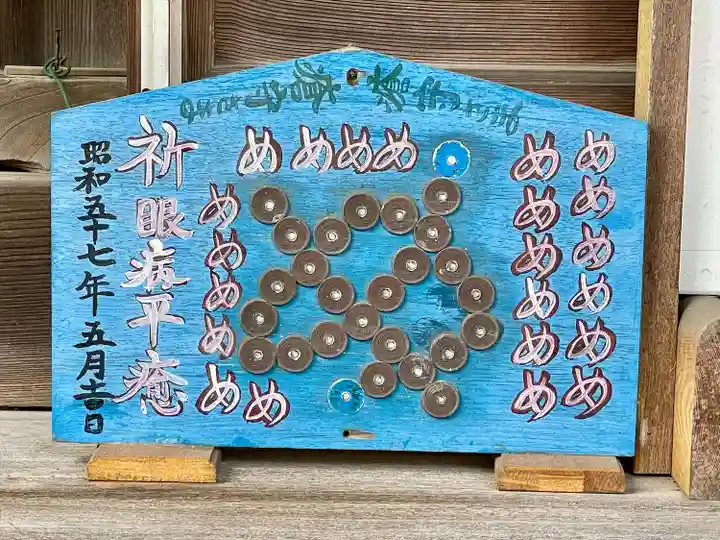 めめめめめめ
めめめめめめ
めめめめ
め
めめめめ
めめ
祈眼病平癒
昭和五十七年五月吉日